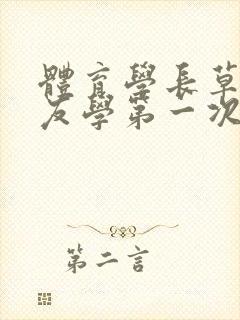 體育學長草
友學第一次
第二言